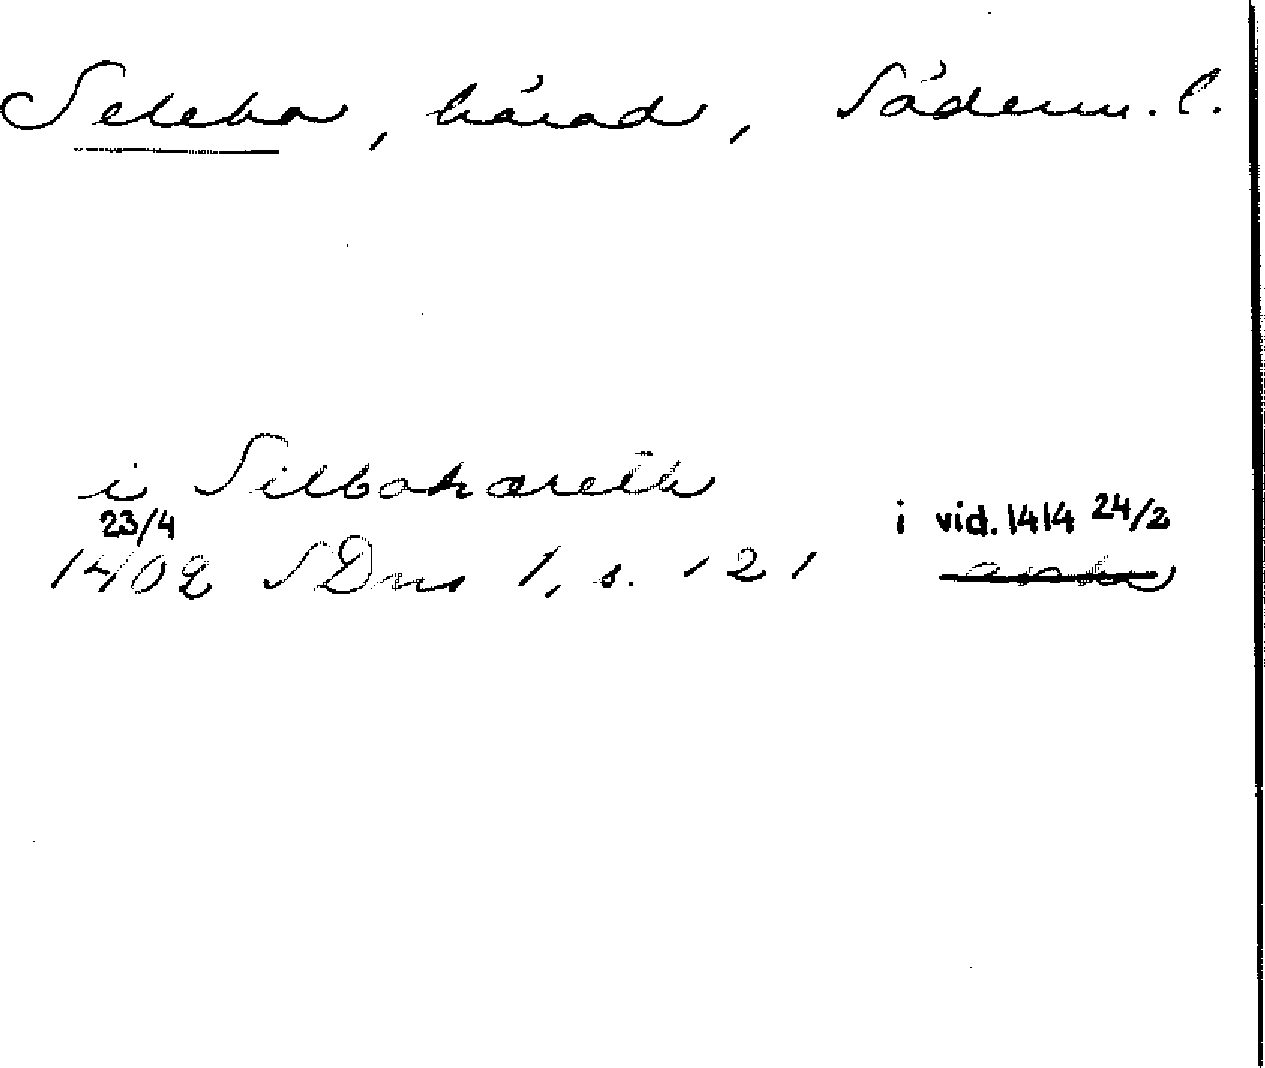 Selebo, härad, Söderm. l.
i Silbohæreth
23/4 i vid. 1414 24/2
1402 SDns 1, s. 121